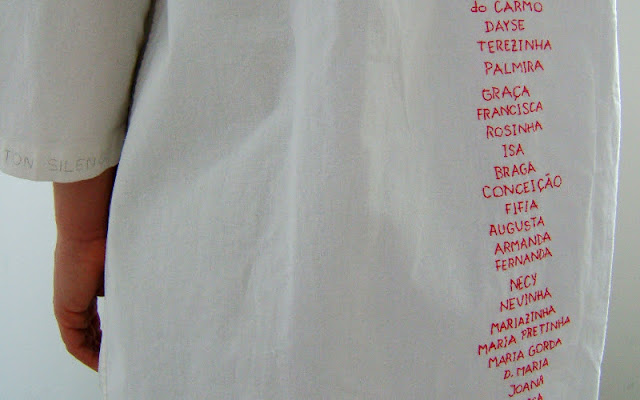 do CARMO
DAYSE
TEREZINHA
PALMIRA
GRAÇA
FRANCISCA
ROSINHA
ISA
BRAGA
CONCEIÇÃO
FIFIA
AUGUSTA
ARMANDA
FERNANDA
NECY
NEVINHA
MARIAZINHA
MARIA PRETINHA
MARIA GORDA
D. MARIA
JOANA
TON SILENC